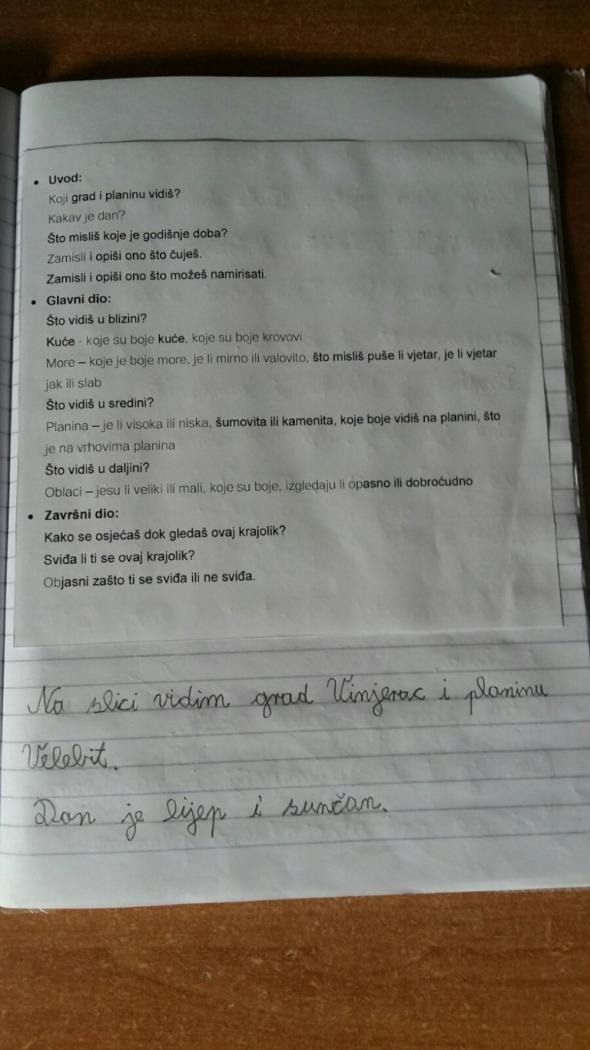 • Uvod:
Koji grad i planinu vidiš?
Kakav je dan?
Što misliš koje je godišnje doba?
Zamisli i opiši ono što čuješ.
Zamisli i opiši ono što možeš namirisati.
• Glavni dio:
Što vidiš u blizini?
Kuće - koje su boje kuće, koje su boje krovovi
More – koje je boje more, je li mirno ili valovito, što misliš puše li vjetar, je li vjetar
jak ili slab
Što vidiš u sredini?
Planina – je li visoka ili niska, šumovita ili kamenita, koje boje vidiš na planini, što
je na vrhovima planina
Što vidiš u daljini?
Oblaci – jesu li veliki ili mali, koje su boje, izgledaju li opasno ili dobroćudno
• Završni dio:
Kako se osjećaš dok gledaš ovaj krajolik?
Sviđa li ti se ovaj krajolik?
Objasni zašto ti se sviđa ili ne sviđa.
Na slici vidim grad Vinjerac i planinu
Velebit.
Dan je lijep i sunčan.